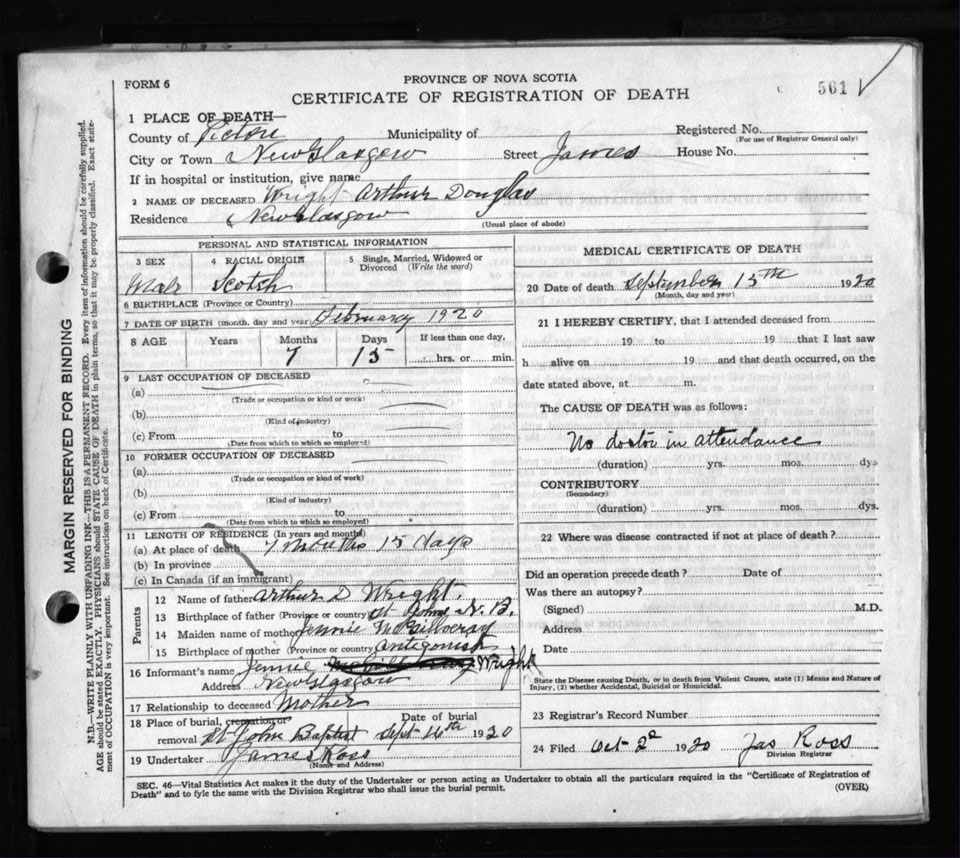 FORM 6
PROVINCE OF NOVA SCOTIA
CERTIFICATE OF REGISTRATION OF DEATH
561
1 PLACE OF DEATH—
County of Pictou Municipality of
Registered No.
(For use of Registrar General only)
City or Town New Glasgow Street James House No.
If in hospital or institution, give name
2 NAME OF DECEASED Wright Arthur Douglas
Residence New Glasgow
(Usual place of abode)
PERSONAL AND STATISTICAL INFORMATION
3 SEX 4 RACIAL ORIGIN 5 Single, Married, Widowed or Divorced (Write the word)
Male Scotch
6 BIRTHPLACE (Province or Country)
7 DATE OF BIRTH (month, day and year) February 1920
8 AGE Years Months Days If less than one day,
7 15 hrs. or min.
9 LAST OCCUPATION OF DECEASED
(a)
(Trade or occupation or kind or work)
(b)
(Kind of industry)
(c) From to
(Date from which to which so employed)
10 FORMER OCCUPATION OF DECEASED
(a)
(Trade or occupation or kind of work)
(b)
(Kind of industry)
(c) From to
(Date from which to which so employed)
11 LENGTH OF RESIDENCE (In years and months)
(a) At place of death 7 months 15 days
(b) In province
(c) In Canada (if an immigrant)
Parents
12 Name of father Arthur D Wright.
13 Birthplace of father (Province or country) St John N. B.
14 Maiden name of mother Jennie McGillvray
15 Birthplace of mother (Province or country) Antigonish
16 Informant's name Jennie Wright
Address New Glasgow
17 Relationship to deceased Mother
18 Place of burial, cremation or removal St John Baptist Date of burial Sept 16th 1920
19 Undertaker James Ross
(Name and Address)
MEDICAL CERTIFICATE OF DEATH
20 Date of death September 15th 1920
(Month, day and year)
21 I HEREBY CERTIFY, that I attended deceased from
19 to 19 that I last saw
h alive on 19 and that death occurred, on the
date stated above, at m.
The CAUSE OF DEATH was as follows:
No doctor in attendance
(duration) yrs. mos. dys
CONTRIBUTORY
(Secondary)
(duration) yrs. mos. dys.
22 Where was disease contracted if not at place of death?
Did an operation precede death? Date of
Was there an autopsy?
(Signed) M.D.
Address
Date
State the Disease causing Death, or in death from Violent Causes, state (1) Means and Nature of
Injury, (2) whether Accidental, Suicidal or Homicidal.
23 Registrar's Record Number
24 Filed Oct 2d 1920 Jas Ross
Division Registrar
SEC. 46—Vital Statistics Act makes it the duty of the Undertaker or person acting as Undertaker to obtain all the particulars required in the "Certificate of Registration of
Death" and to fyle the same with the Division Registrar who shall issue the burial permit.
(OVER)
MARGIN RESERVED FOR BINDING
N.B.—WRITE PLAINLY WITH UNFADING INK—THIS IS A PERMANENT RECORD. Every item of information should be carefully supplied.
AGE should be stated EXACTLY. PHYSICIANS should STATE CAUSE OF DEATH in plain terms, so that it may be properly classified. Exact state-
ment of OCCUPATION is very important. See instructions on back of Certificate.